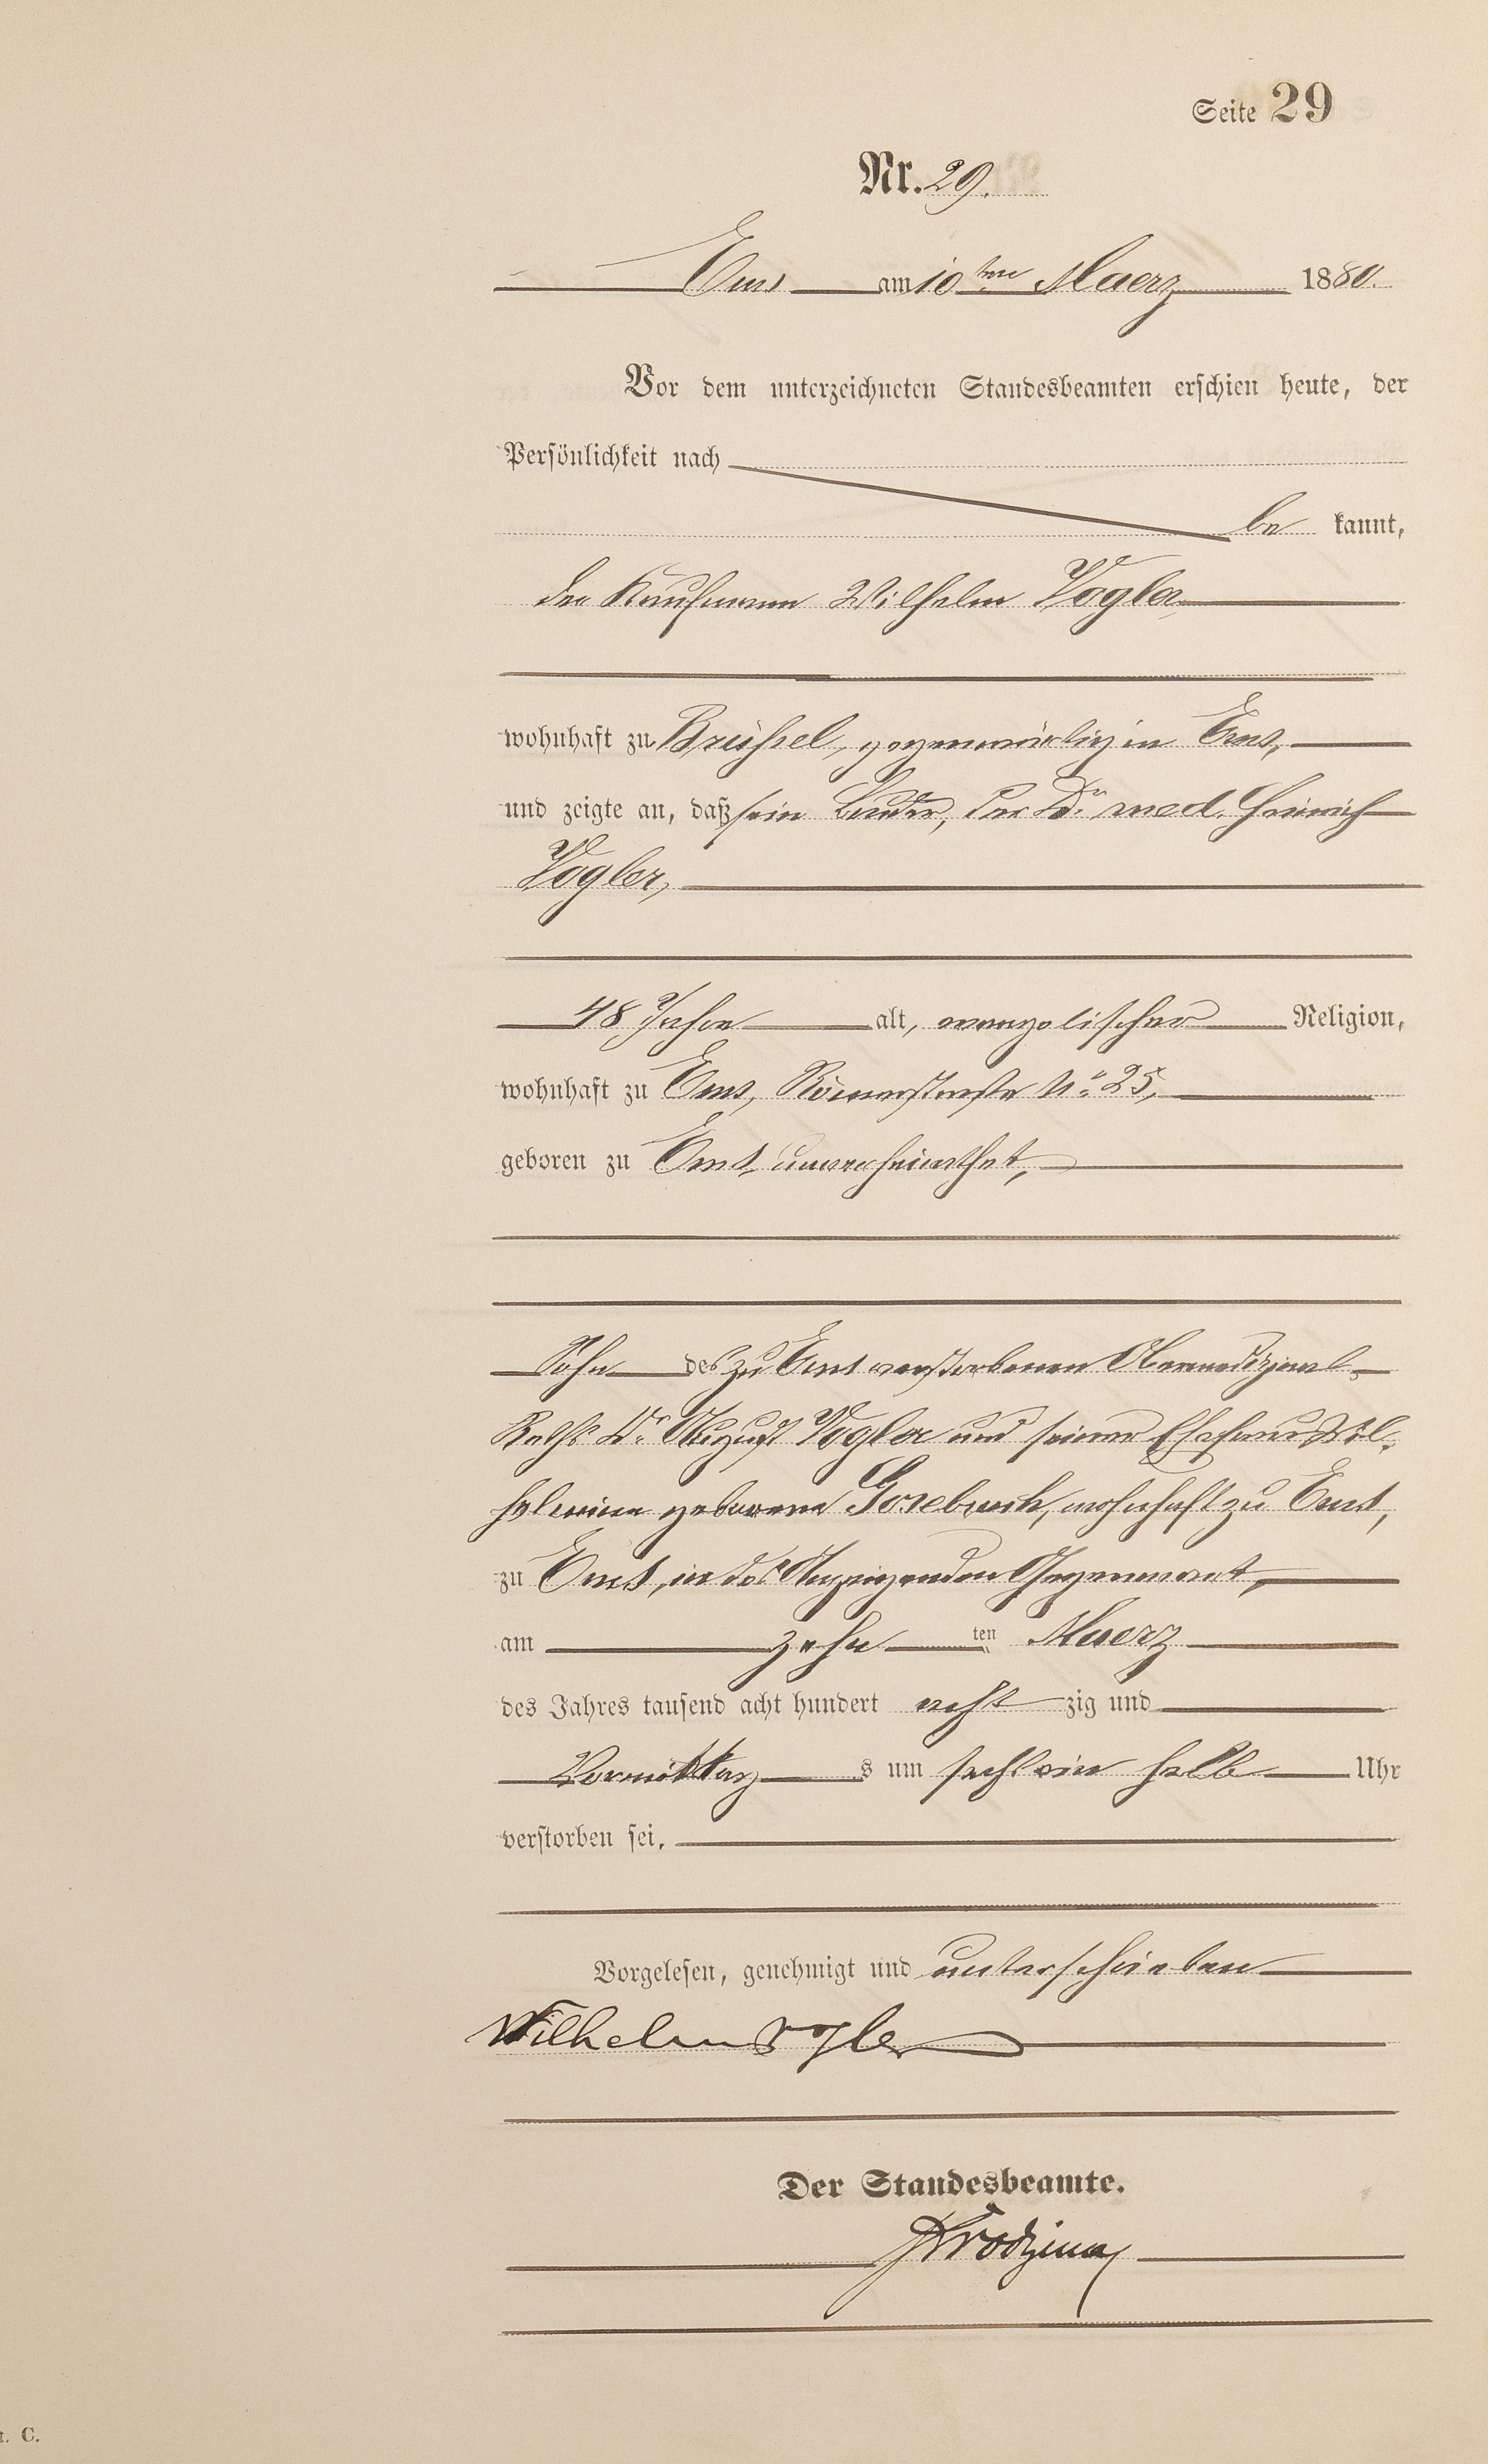 Seite 29
Nr. 29.
Ems am 10ten Maerz 1880.
Vor dem unterzeichneten Standesbeamten erschien heute, der
Persönlichkeit nach
be kannt,
der Kaufmann Wilhelm Vogler,
wohnhaft zu Brüssel, gegenwärtig in Ems,
und zeigte an, daß sein Bruder, der Dr. med. Heinrich
Vogler,
48 Jahre alt, evangelischer Religion,
wohnhaft zu Ems, Römerstraße No. 25,
geboren zu Ems, unverheirathet,
Sohn des zu Ems verstorbenen Obermedizinal-
Raths Dr. August Vogler und seiner Ehefrau Wil-
helmine geborene Gosebruch, wohnhaft zu Ems,
zu Ems, in des Anzeigenden Gegenwart,
am zehn ten Maerz
des Jahres tausend acht hundert acht zig und
Vormittag s um sechs ein halb Uhr
verstorben sei.
Vorgelesen, genehmigt und unterschrieben
Wilhelm Vogler
Der Standesbeamte.
t. C.